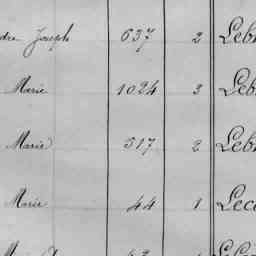 Joseph 637 2 Leb
Marie 1024 3 Leb
Marie 517 2 Leb
Marie 44 1 Lec